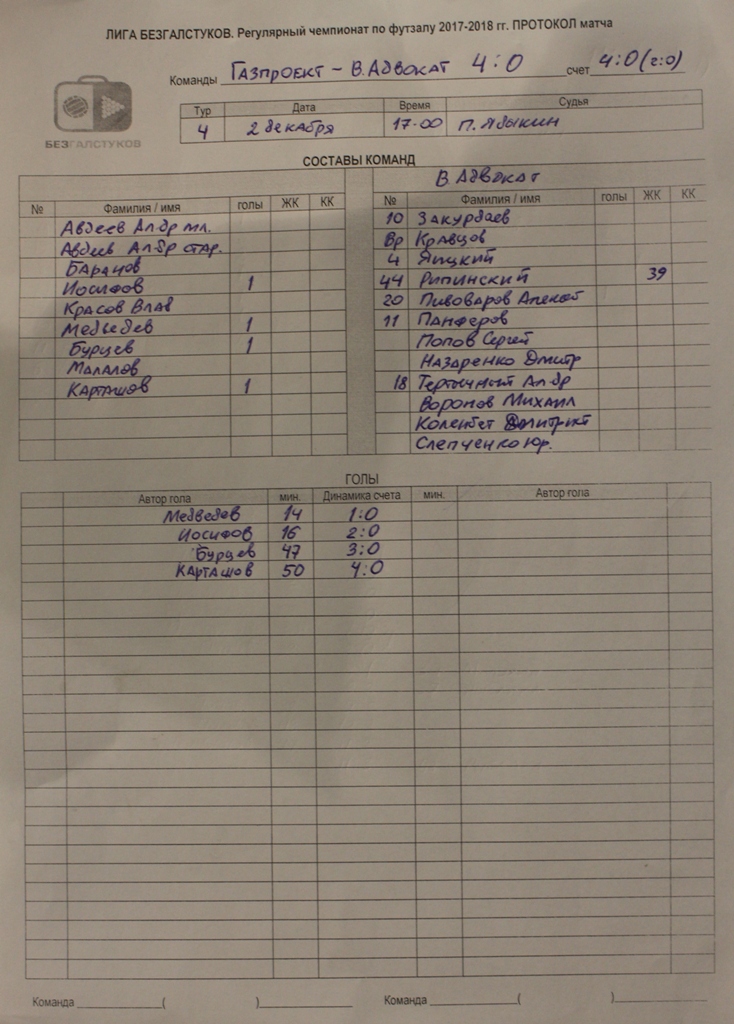 ЛИГА БЕЗГАЛСТУКОВ. Регулярный чемпионат по футзалу 2017-2018 гг. ПРОТОКОЛ матча
Команды Газпроект - В.Адвокат 4:0 счет 4:0 (2:0)
БЕЗГАЛСТУКОВ
Тур Дата Время Судья
4 2 декабря 17-00 П. Ябыкин
СОСТАВЫ КОМАНД
№ Фамилия / имя голы ЖК КК
Авдеев Ал-др мл.
Авдеев Ал-др стар.
Баранов
Иосифов 1
Красов Влад
Медведев 1
Бурцев 1
Малалов
Карташов 1
В. Адвокат
№ Фамилия / имя голы ЖК КК
10 Закурдаев
Вр Кравцов
4 Яицкий
44 Рипинский 39
20 Пивоваров Алексей
11 Панферов
Попов Сергей
Назаренко Дмитр
18 Тертычный Ал-др
Воронов Михаил
Коленбет Дмитрий
Слепченко Юр.
ГОЛЫ
Автор гола мин. Динамика счета мин. Автор гола
Медведев 14 1:0
Иосифов 16 2:0
Бурцев 47 3:0
Карташов 50 4:0
Команда ( ) Команда ( )